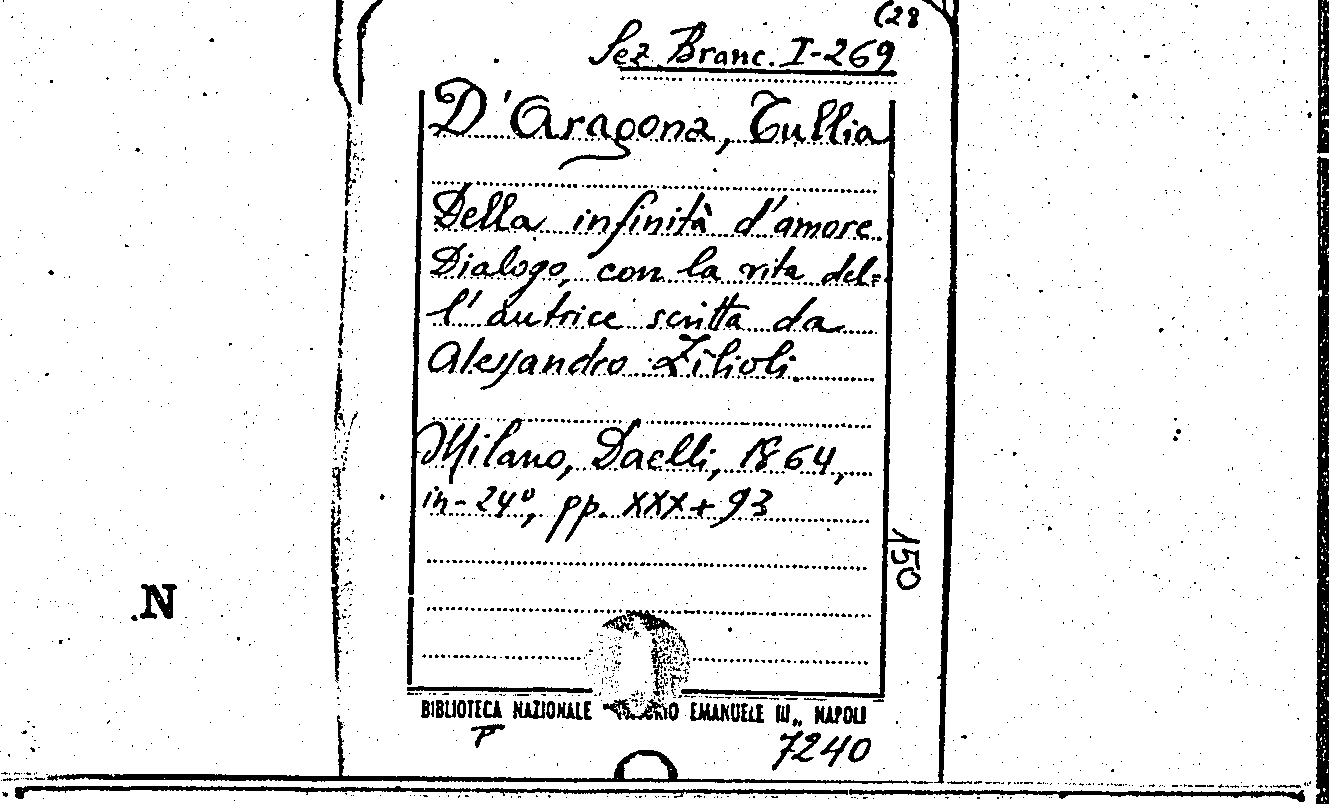 (28
Sez. Branc. I-269
D'Aragona, Tullia
Della infinità d'amore.
Dialogo, con la vita del=
l'autrice scritta da
Alessandro Zilioli.
Milano, Daelli, 1864,
in-24°, pp. XXX+93
150
.N
BIBLIOTECA NAZIONALE EMANUELE III„ NAPOLI
7240